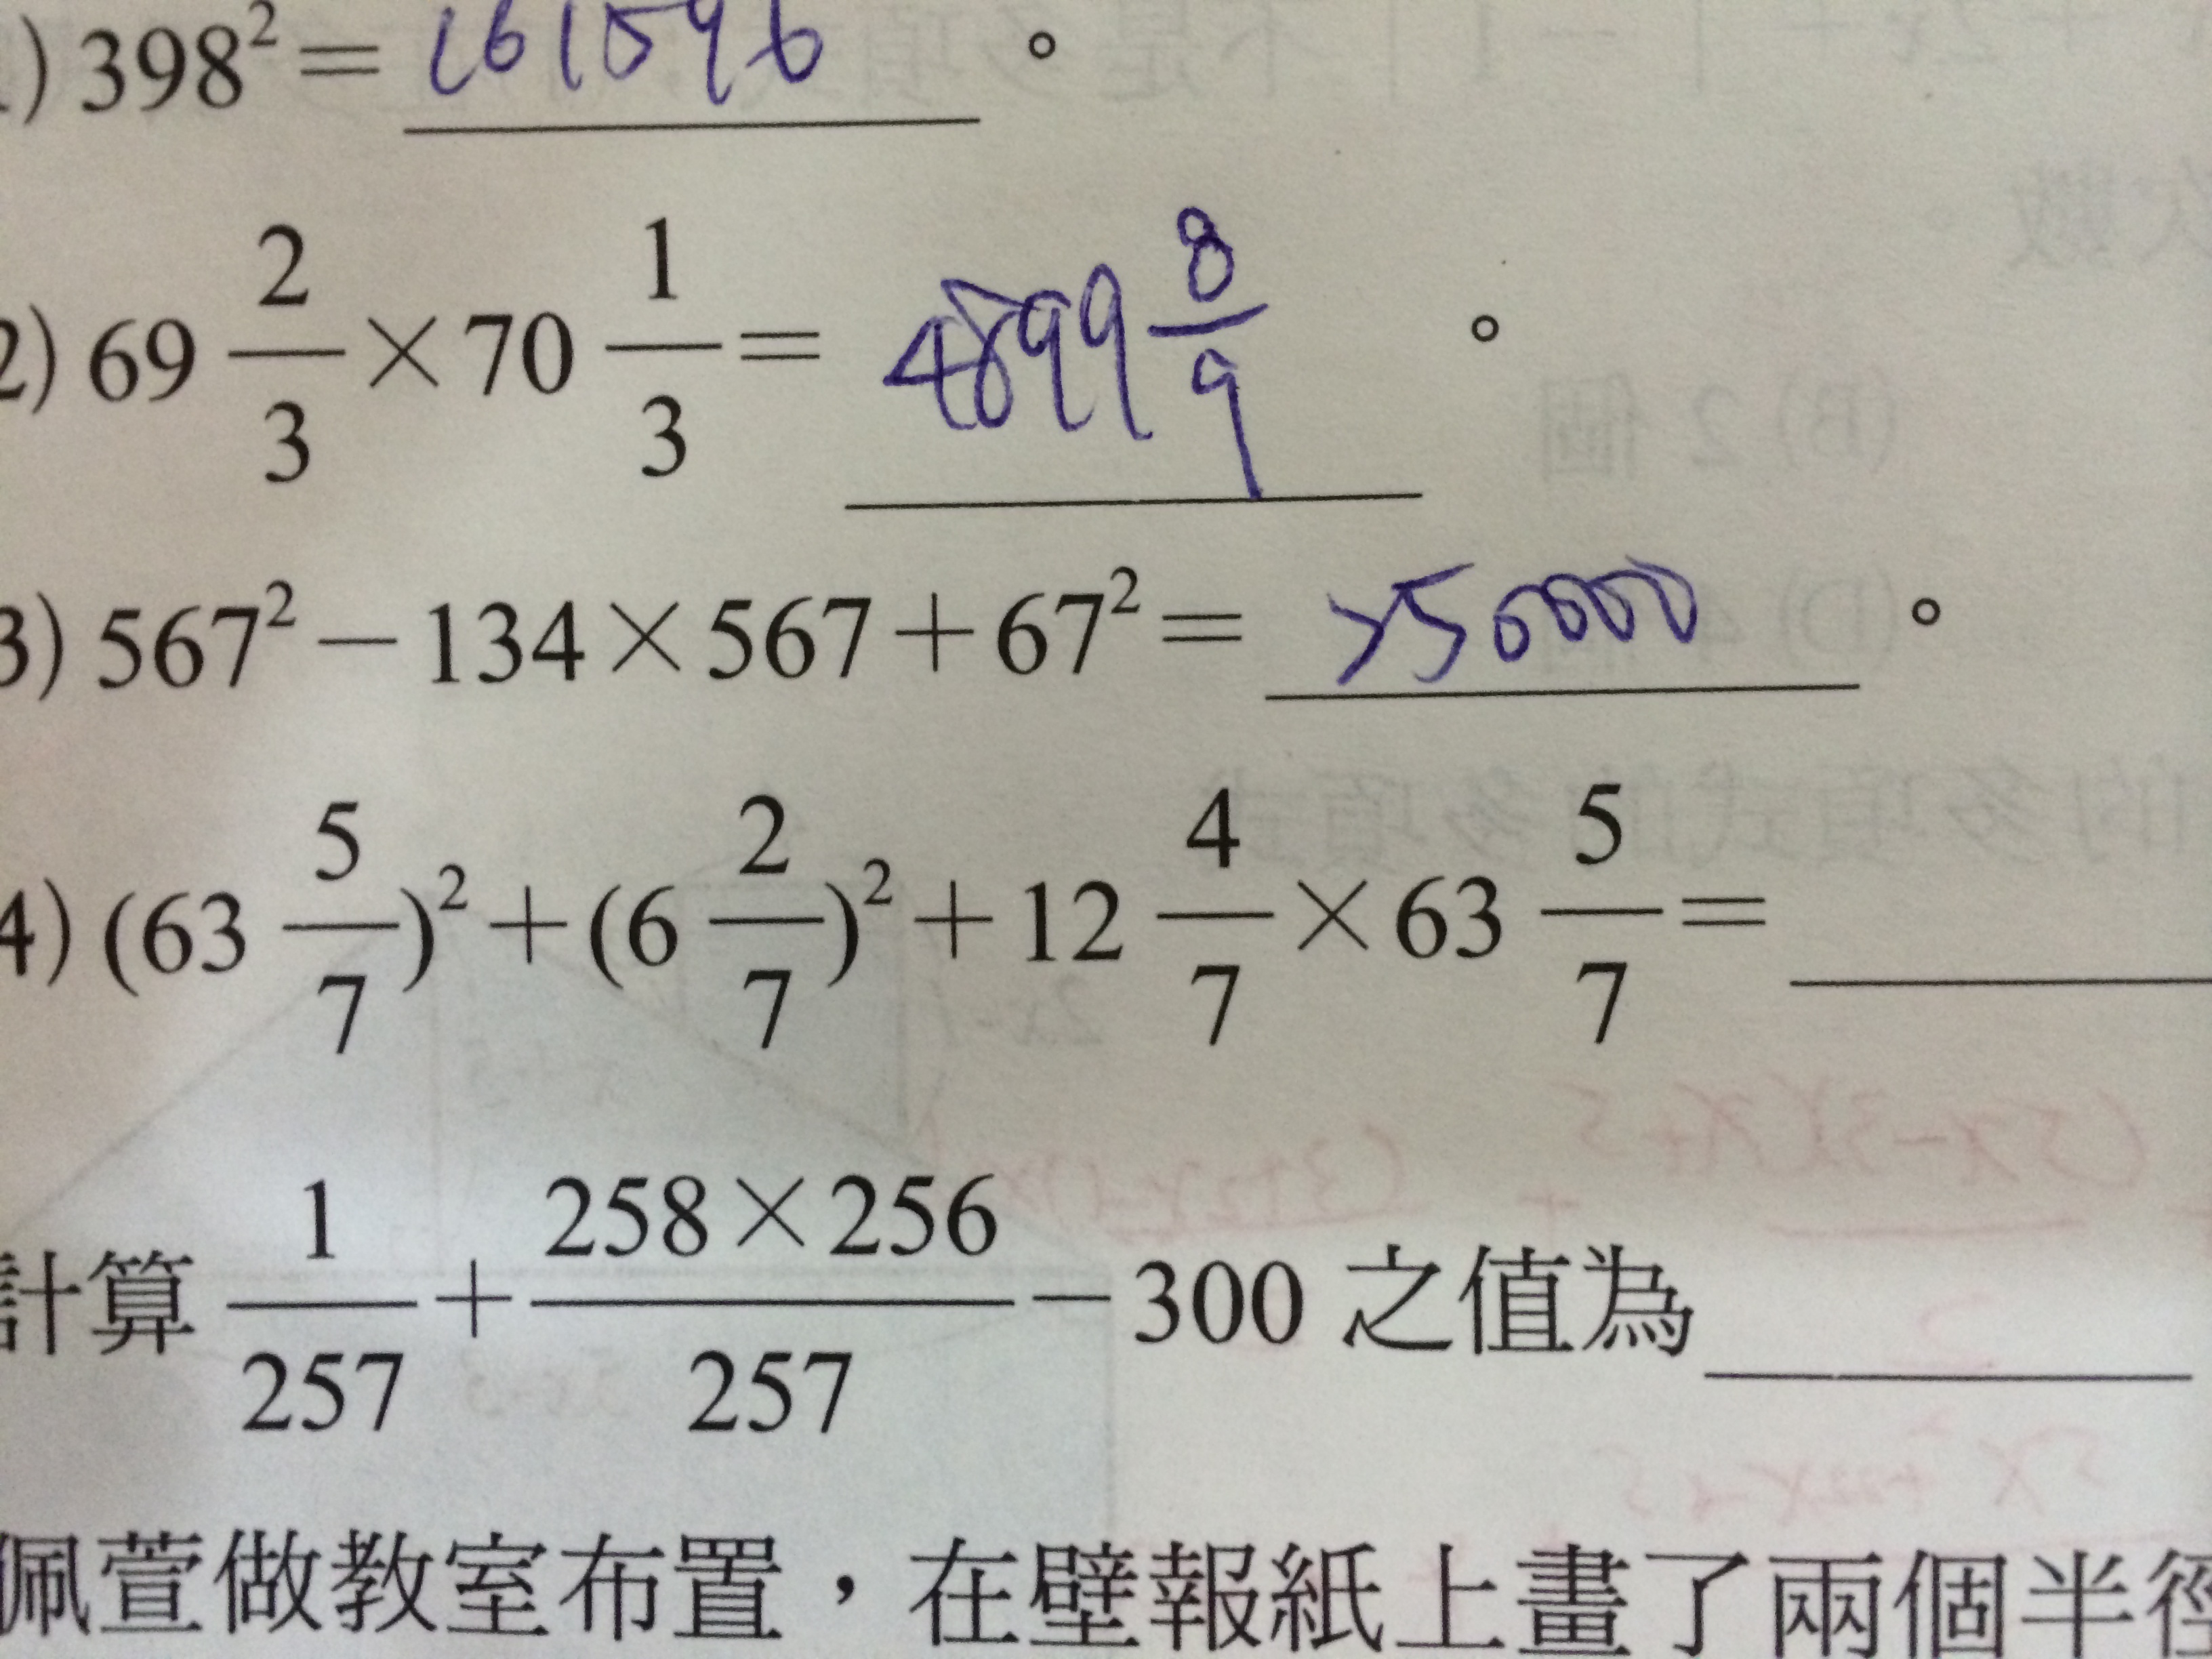 1) 398² = 161596 。
2) 69 2/3 × 70 1/3 = 4899 8/9 。
3) 567² − 134 × 567 + 67² = 250000 。
4) (63 5/7)² + (6 2/7)² + 12 4/7 × 63 5/7 =
計算 1/257 + 258×256/257 − 300 之值為
佩萱做教室布置，在壁報紙上畫了兩個半徑